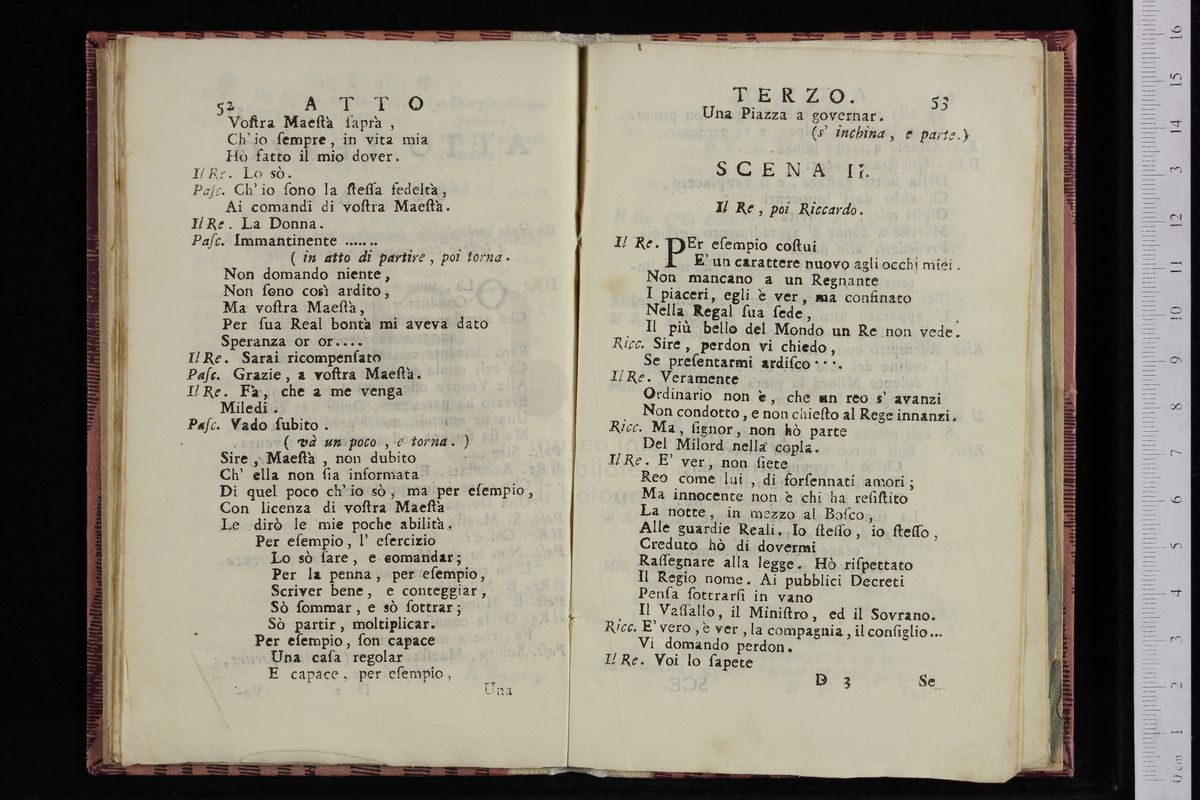 52 ATTO
Voſtra Maeſtà ſaprà ,
Ch' io ſempre , in vita mia
Hò fatto il mio dover .
Il Re . Lo sò .
Paſc. Ch' io ſono la ſteſſa fedeltà ,
Ai comandi di voſtra Maeſtà .
Il Re . La Donna .
Paſc. Immantinente .......
( in atto di partire , poi torna .
Non domando niente ,
Non ſono così ardito ,
Ma voſtra Maeſtà ,
Per ſua Real bontà mi aveva dato
Speranza or or ....
Il Re . Sarai ricompenſato
Paſc. Grazie , a voſtra Maeſtà .
Il Re . Fà , che a me venga
Miledi .
Paſc. Vado ſubito .
( và un poco , e torna . )
Sire , Maeſtà , non dubito
Ch' ella non ſia informata
Di quel poco ch' io sò , ma per eſempio ,
Con licenza di voſtra Maeſtà
Le dirò le mie poche abilità .
Per eſempio , l' eſercizio
Lo sò fare , e comandar ;
Per la penna , per eſempio ,
Scriver bene , e conteggiar ,
Sò ſommar , e sò ſottrar ;
Sò partir , moltiplicar .
Per eſempio , ſon capace
Una caſa regolar
E capace , per eſempio ,
Una
TERZO . 53
Una Piazza a governar .
( s' inchina , e parte . )
SCENA II .
Il Re , poi Riccardo .
Il Re . PEr eſempio coſtui
E' un carattere nuovo agli occhj miei .
Non mancano a un Regnante
I piaceri , egli è ver , ma confinato
Nella Regal ſua ſede ,
Il più bello del Mondo un Re non vede .
Ricc. Sire , perdon vi chiedo ,
Se preſentarmi ardiſco ....
Il Re . Veramente
Ordinario non è , che un reo s' avanzi
Non condotto , e non chieſto al Rege innanzi .
Ricc. Ma , ſignor , non hò parte
Del Milord nella copla .
Il Re . E' ver , non ſiete
Reo come lui , di forſennati amori ;
Ma innocente non è chi ha reſiſtito
La notte , in mezzo al Boſco ,
Alle guardie Reali . Io ſteſſo , io ſteſſo ,
Creduto hò di dovermi
Raſſegnare alla legge . Hò riſpettato
Il Regio nome . Ai pubblici Decreti
Penſa ſottrarſi in vano
Il Vaſſallo , il Miniſtro , ed il Sovrano .
Ricc. E' vero , è ver , la compagnia , il conſiglio ...
Vi domando perdon .
Il Re . Voi lo ſapete
D 3 Se